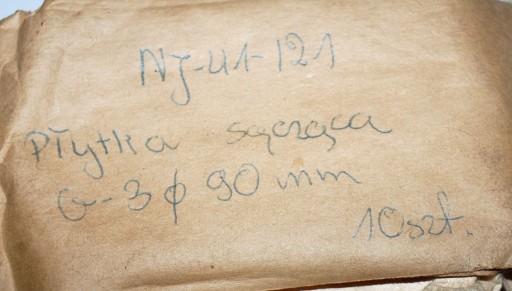 NJ-41-121
Płytka sącząca
G-3 ϕ 90 mm
10szt.